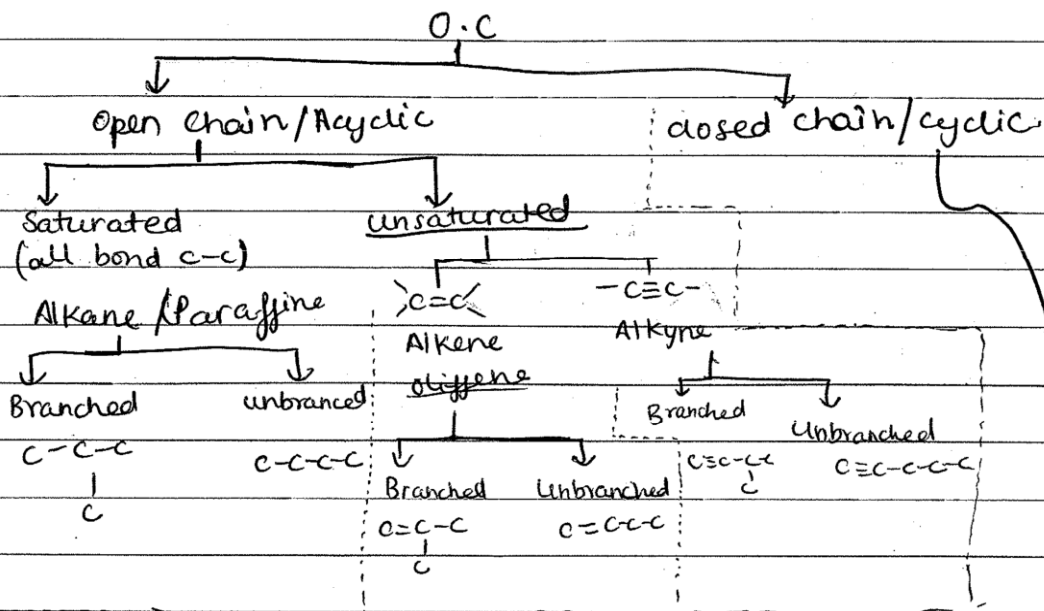 O.C
Open chain/Acyclic
closed chain/cyclic
Saturated
(all bond c-c)
unsaturated
Alkane/Paraffine
>C=C<
-C≡C-
Alkene
oliffene
Alkyne
Branched
unbranced
C-C-C
|
C
C-C-C-C
Branched
Unbranched
C=C-C
|
C
C=C-C-C
Branched
Unbranched
C≡C-C-C
|
C
C≡C-C-C-C